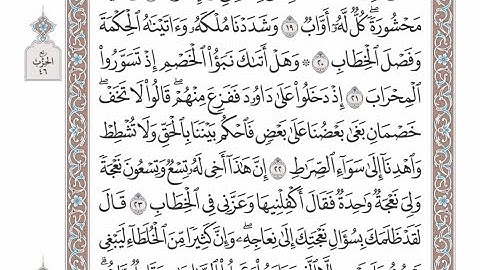 مَحۡشُورَةٗۖ كُلّٞ لَّهُۥٓ أَوَّابٞ ١٩ وَشَدَدۡنَا مُلۡكَهُۥ وَءَاتَيۡنَٰهُ ٱلۡحِكۡمَةَ
وَفَصۡلَ ٱلۡخِطَابِ ٢٠ ۞ وَهَلۡ أَتَىٰكَ نَبَؤُاْ ٱلۡخَصۡمِ إِذۡ تَسَوَّرُواْ
ٱلۡمِحۡرَابَ ٢١ إِذۡ دَخَلُواْ عَلَىٰ دَاوُۥدَ فَفَزِعَ مِنۡهُمۡۖ قَالُواْ لَا تَخَفۡۖ
خَصۡمَانِ بَغَىٰ بَعۡضُنَا عَلَىٰ بَعۡضٖ فَٱحۡكُم بَيۡنَنَا بِٱلۡحَقِّ وَلَا تُشۡطِطۡ
وَٱهۡدِنَآ إِلَىٰ سَوَآءِ ٱلصِّرَٰطِ ٢٢ إِنَّ هَٰذَآ أَخِي لَهُۥ تِسۡعٞ وَتِسۡعُونَ نَعۡجَةٗ
وَلِيَ نَعۡجَةٞ وَٰحِدَةٞ فَقَالَ أَكۡفِلۡنِيهَا وَعَزَّنِي فِي ٱلۡخِطَابِ ٢٣ قَالَ
لَقَدۡ ظَلَمَكَ بِسُؤَالِ نَعۡجَتِكَ إِلَىٰ نِعَاجِهِۦۖ وَإِنَّ كَثِيرٗا مِّنَ ٱلۡخُلَطَآءِ لَيَبۡغِي
ربع
الحزب
٤٦